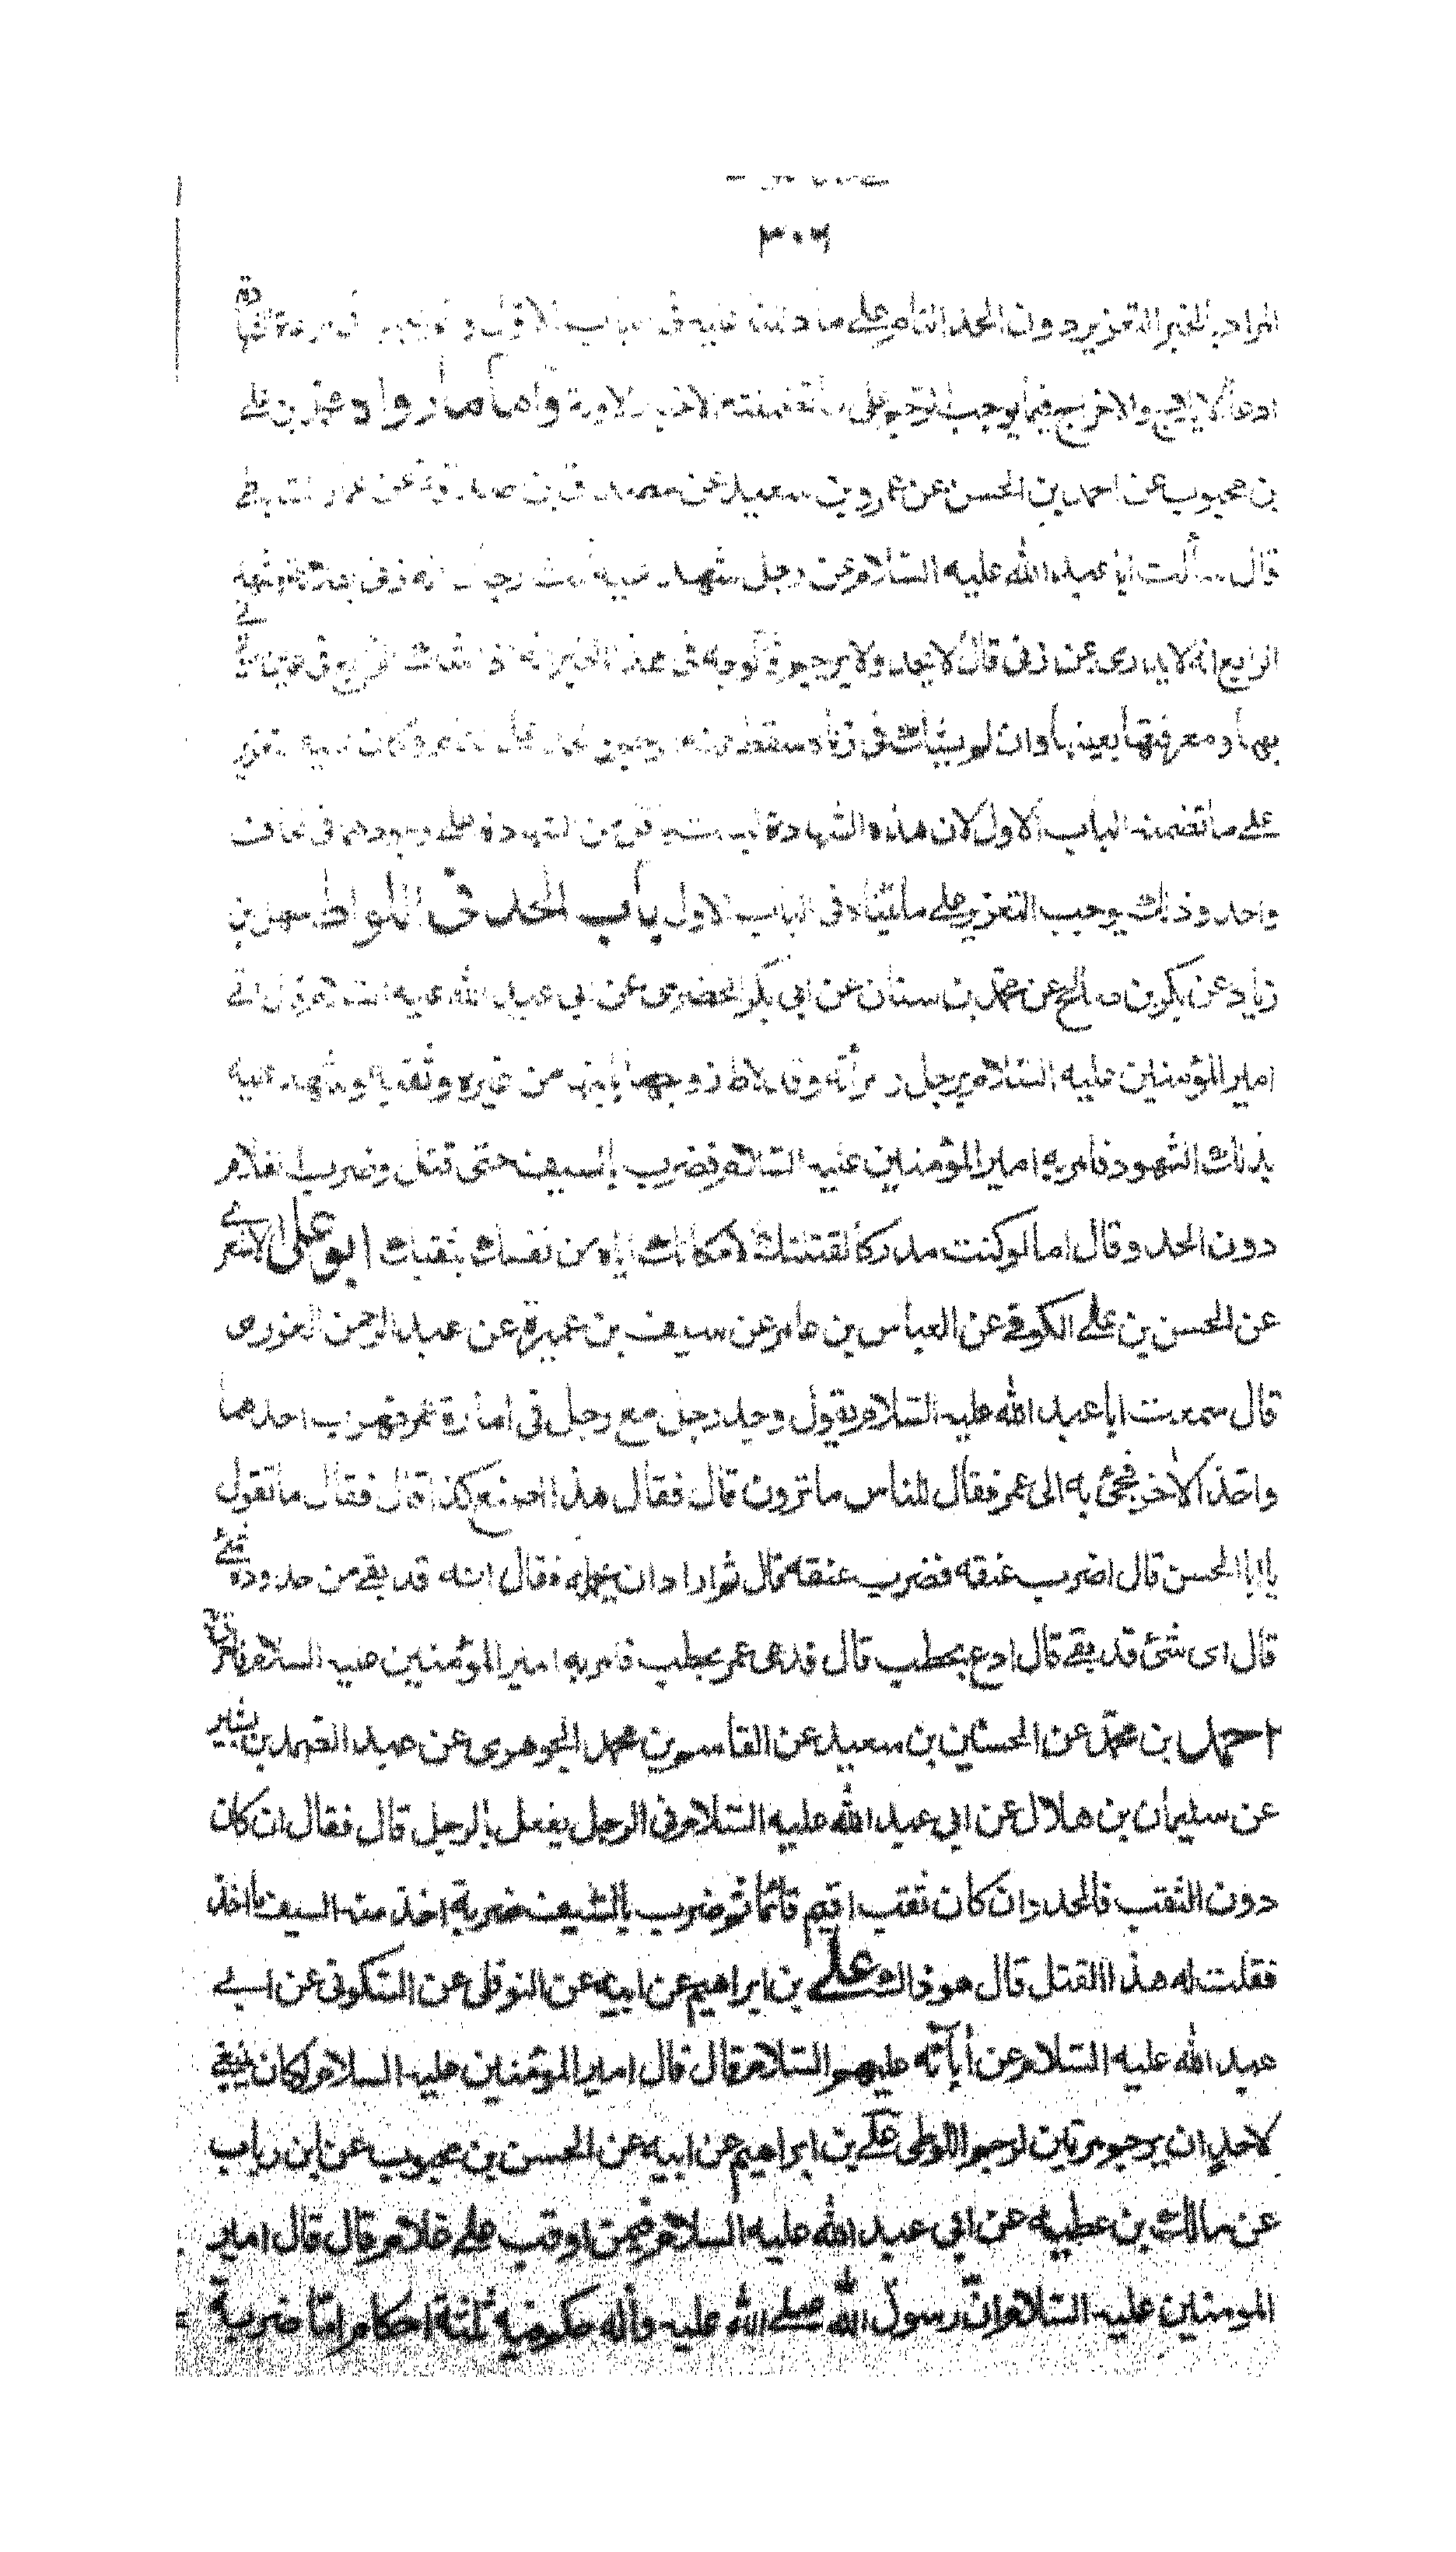 ٣٠٦
المراد بالخبر التعزير دون الحد التام على ما دللنا عليه فى الباب الاول و
ادعا الايلاج والاخراج فيما يوجب الرجم على ما تضمنته الاخبار الاولة واما ما رواه محمد بن على
بن محبوب عن احمد بن الحسن عن عمرو بن سعيد عن مصدق بن صدقة عن عمار الساباطى
قال سألت ابا عبد الله عليه السلام عن رجل شهد عليه ثلث رجال انه زنى بفلانة وشهد
الرابع انه لا يدرى بمن زنى قال لا يحد ولا يرجم فالوجه فى هذا الخبر انه اذا شك الرابع فى عين التى زنى
بها و معرفتها بعينها وان لم يشك فى زناه سقط عنه الرجم
على ما تضمنه الباب الاول لان هذه الشهادة ليست من الشهادة على وجودهم فى لحاف
واحد وذلك يوجب التعزير على ما بيناه فى الباب الاول باب الحد فى اللواط سهل بن
زياد عن بكر بن صالح عن محمد بن سنان عن ابى بكر الحضرمى عن ابى عبد الله عليه السلام قال اتى
امير المؤمنين عليه السلام برجل و امرأته وقد لاط زوجها بابنها من غيره وثقبه وشهد عليه
بذلك الشهود فامر به امير المؤمنين عليه السلام فضرب بالسيف حتى قتل وضرب الغلام
دون الحد وقال اما لو كنت مدركا لقتلتك لامكانك اياه من نفسك بثقبك ابو على الاشعرى
عن الحسن بن على الكوفى عن العباس بن عامر عن سيف بن عميرة عن عبد الرحمن العزرمى
قال سمعت ابا عبد الله عليه السلام يقول وجد رجل مع رجل فى امارة عمر فهرب احدهما
واخذ الاخر فجئ به الى عمر فقال للناس ما ترون قال فقال هذا اصنع كذا قال فقال ما تقول
يا ابا الحسن قال اضرب عنقه فضرب عنقه قال ثم اراد ان يحمله فقال انه قد بقى من حدوده شئ
قال اى شئ قد بقى قال ادع بحطب قال فدعى عمر بحطب فامر به امير المؤمنين عليه السلام فاحرق به
احمد بن محمد عن الحسين بن سعيد عن القاسم بن محمد الجوهرى عن عبد الصمد بن بشير
عن سليمان بن هلال عن ابى عبد الله عليه السلام فى الرجل يفعل بالرجل قال فقال ان كان
دون الثقب فالحد وان كان ثقب اقيم قائما ثم ضرب بالسيف ضربة اخذ منه السيف ما اخذ
فقلت له هذا القتل قال هو ذاك على بن ابراهيم عن ابيه عن النوفلى عن السكونى عن ابى
عبد الله عليه السلام عن آبائه عليهم السلام قال قال امير المؤمنين عليه السلام لو كان ينبغى
لاحد ان يرجم مرتين لرجم اللوطى على بن ابراهيم عن ابيه عن الحسن بن محبوب عن ابن رياب
عن مالك بن عطيه عن ابى عبد الله عليه السلام فيمن اوقب على غلام قال قال امير
المومنين عليه السلام ان رسول الله صلى الله عليه وآله حكم فيه ثلثة احكام اما ضربة